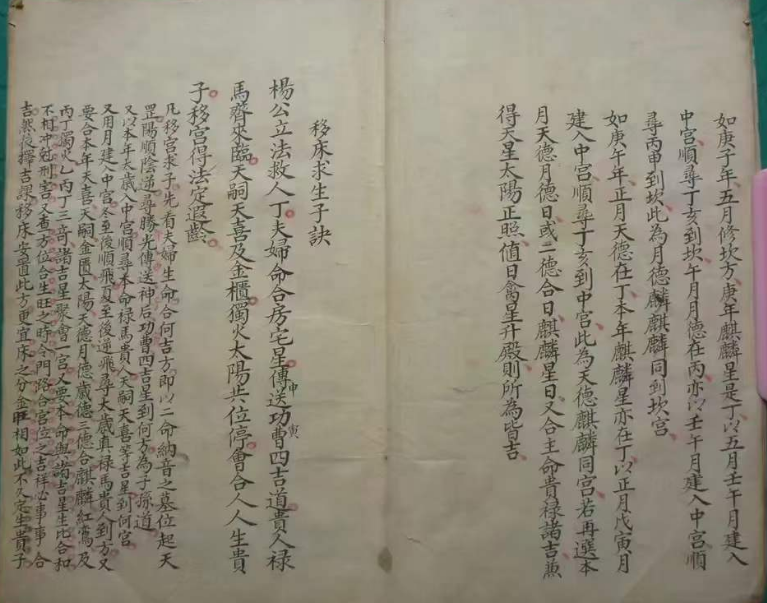 如庚子年五月修坎方庚年麒麟星是丁以五月壬午月建入
中宮順尋丁亥到坎午月月德在丙亦以壬午月建入中宮順
尋丙申到坎此為月德麟麒麟同到坎宮
如庚午年正月天德在丁本年麒麟星亦在丁以正月戊寅月
建入中宮順尋丁亥到中宮此為天德麒麟同宮若再選本
月天德月德日或二德合日麒麟星日又合主命貴祿諸吉兼
得天星太陽正照值日禽星升殿則所為皆吉
移床求生子訣
楊公立法救人丁夫婦命合房宅星傳送申功曹寅四吉道貴人祿
馬齊來臨天嗣天喜及金櫃獨火太陽共位停會合人人生貴
子移宮得法定遐齡
凡移宮求子先看夫婦生命合何吉方即以二命納音之墓位起天
罡陽順陰逆尋勝光傳送神后功曹四吉星到何方為子孫道
又以本年太歲入中宮順尋本命祿馬貴人天嗣天喜等吉星到何宮
又用月建入中宮冬至後順飛夏至後逆飛尋太歲真祿馬貴人到方又
要合本年天喜天嗣金匱太陽天德月德歲德三德合麒麟紅鸞及
丙丁獨火乙丙丁三奇諸吉星聚會一宮又要本命與諸吉星生比合和
不相沖尅刑害又查方位合生旺之時令門路合宮位之吉祥必事事合
吉然後擇吉課移床安置此方更宜床之分金旺相如此不久定生貴子